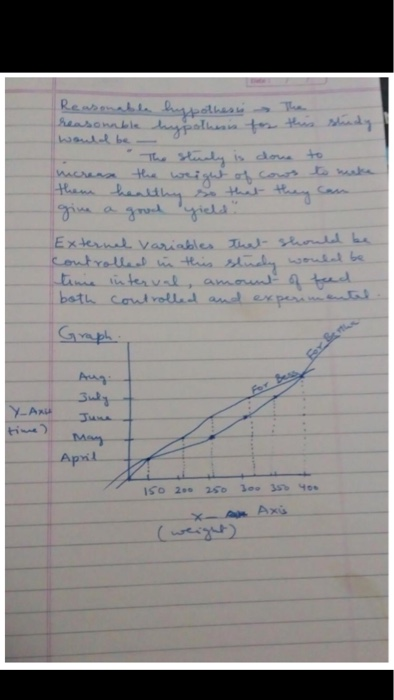 Reasonable hypothesis → The
reasonable hypothesis for this study
would be —
"The study is done to
increase the weight of cows to make
them healthy so that they can
give a good yield".
External variables that should be
controlled in this study would be
time interval, amount of feed
both controlled and experimental.
Graph.
Aug.
July
June
May
April
Y-Axis
(time)
For Bess
For Bertha
150 200 250 300 350 400
X- Axis
(weight)